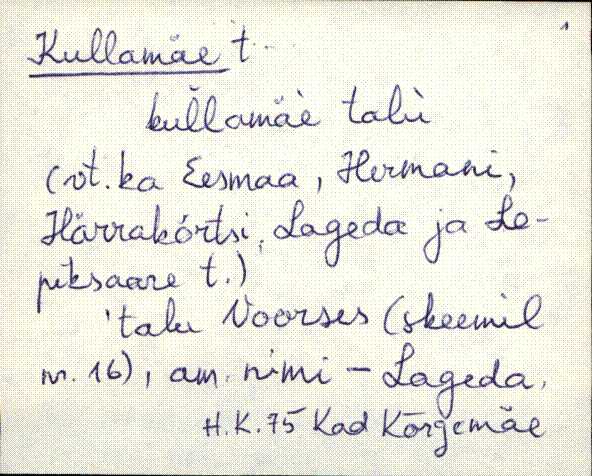 1
Kullamäe t.
kul̆lamäè talù
(vt. ka Eesmaa, Hermani,
Härrakõrtsi, Lageda ja Le-
piksaare t.)
'talu Voorses (skeemil
nr. 16), am. nimi - Lageda.
H.K. 75 Kad Kõrgemäe